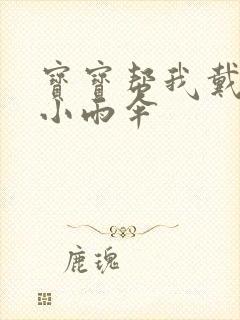 寶寶幫我戴
小雨伞
鹿瑰